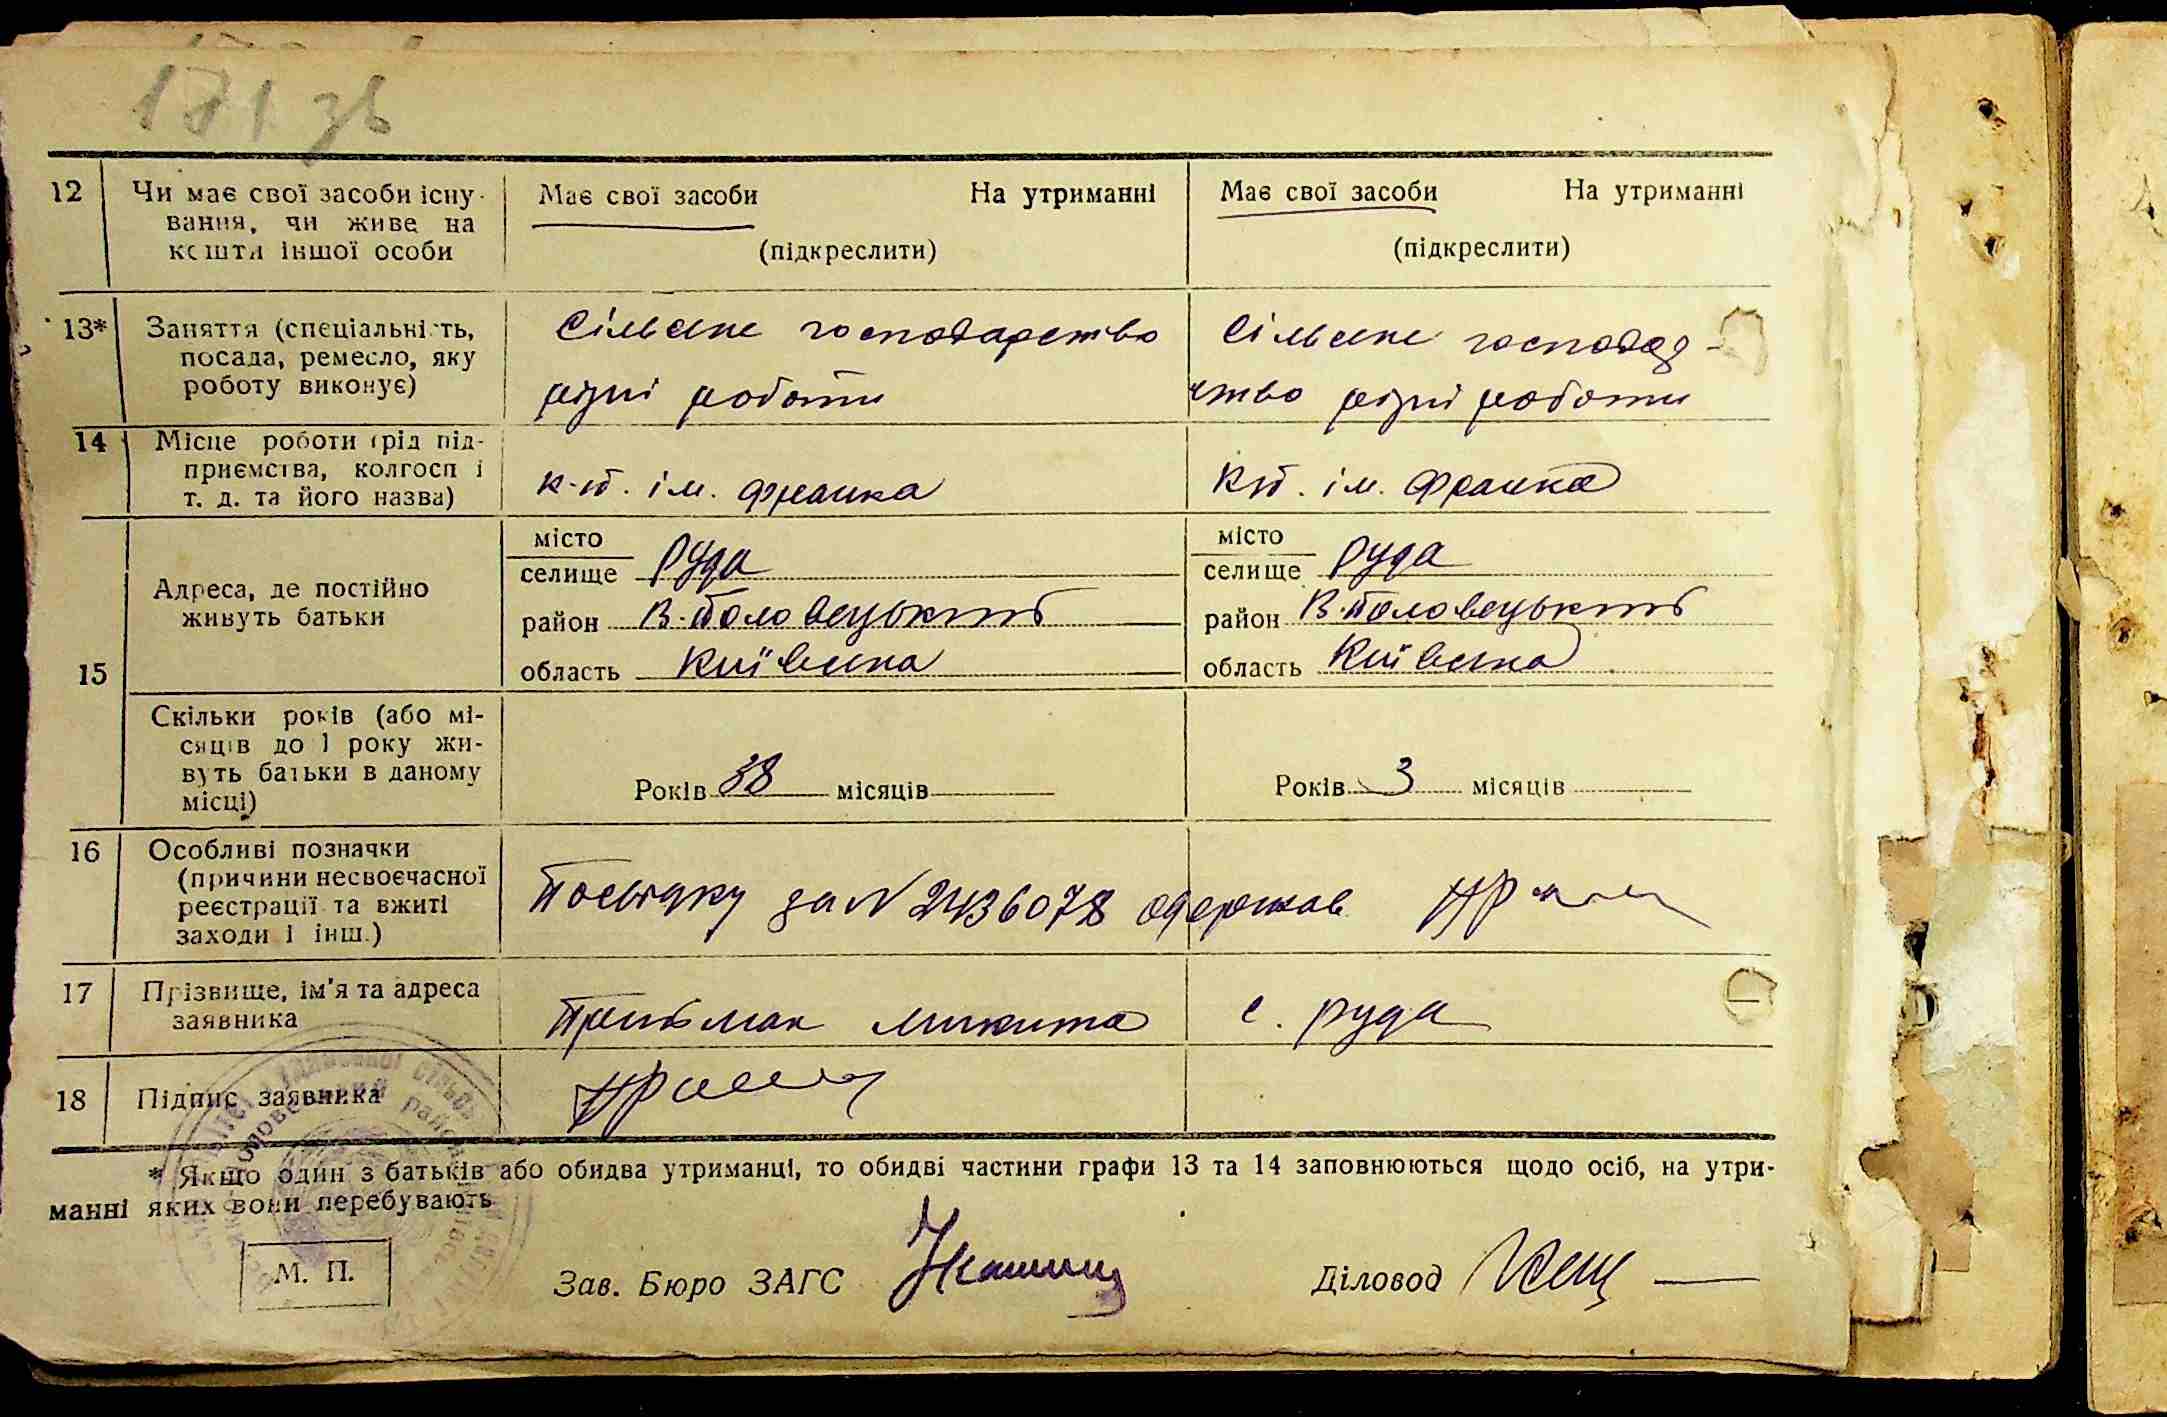 171 зв
12 Чи має свої засоби існу- Має свої засоби На утриманні Має свої засоби На утриманні
вання, чи живе на
кошти іншої особи (підкреслити) (підкреслити)
13* Заняття (спеціальність, Сільське господарство Сільське господар-
посада, ремесло, яку
роботу виконує) різні роботи ство різні роботи
14 Місце роботи (рід під-
приємства, колгосп і к-п. ім. Франка К-п. ім. Франка
т. д. та його назва)
15 Адреса, де постійно
живуть батьки
місто місто
селище Руда селище Руда
район В-Половецький район В-Половецький
область Київська область Київська
Скільки років (або мі-
сяців до 1 року жи-
вуть батьки в даному
місці)
Років 38 місяців Років 3 місяців
16 Особливі позначки
(причини несвоєчасної
реєстрації та вжиті
заходи і інш.)
Посвідку за N 2436078 одержав
17 Прізвище, ім'я та адреса
заявника Приймак Микита с. Руда
18 Підпис заявника
* Якщо один з батьків або обидва утриманці, то обидві частини графи 13 та 14 заповнюються щодо осіб, на утри-
манні яких вони перебувають
М. П. Зав. Бюро ЗАГС Діловод